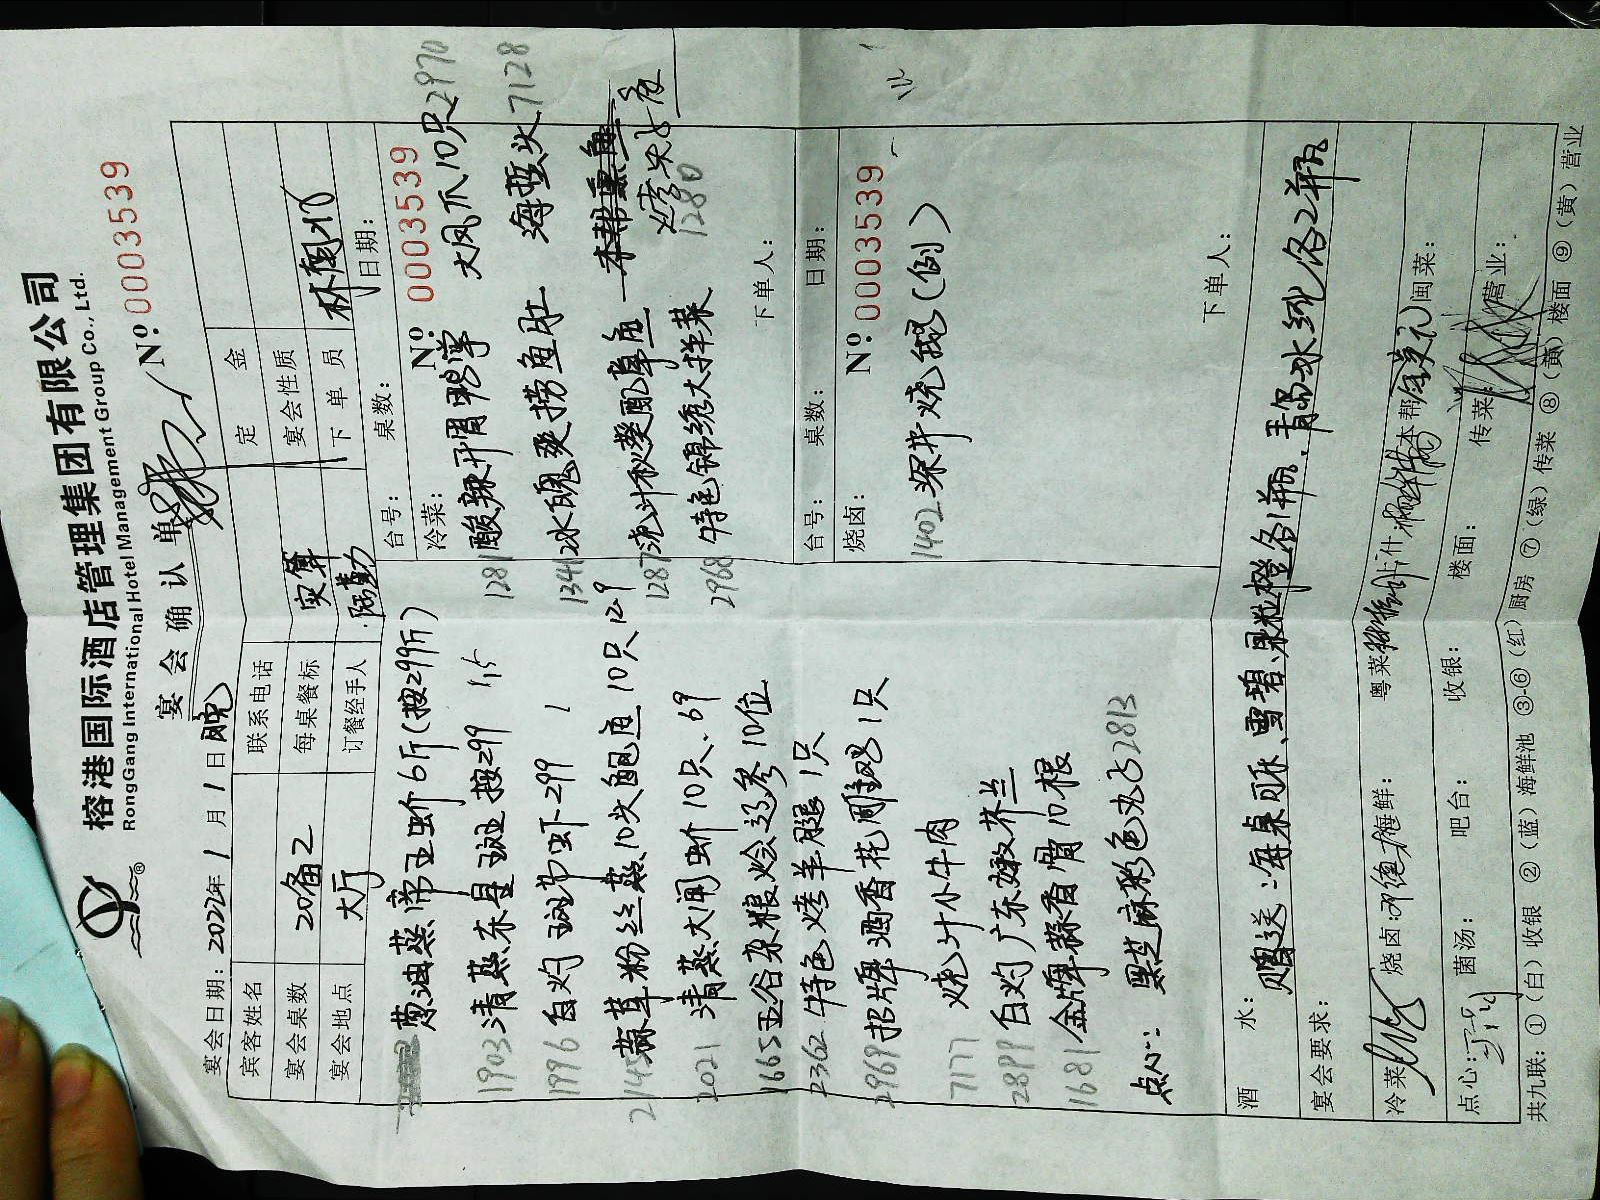 榕港国际酒店管理集团有限公司
RongGang International Hotel Management Group Co., Ltd.
宴会确认单
Nº 0003539
宴会日期：2022年 1 月 1 日 晚
宾客姓名 联系电话 定金
宴会桌数 20备2 每桌餐标 实算 宴会性质
宴会地点 大厅 订餐经手人 下单员
葱油蒸 6斤（按299斤）
1903 清蒸东星斑 按299
1996 白灼斑节虾 299 1
粉丝蒸10头鲍鱼 10只 129
2021 清蒸大闸蟹 10只 . 69
1665 五谷杂粮烩辽参 10位
2362 特色烤羊腿 1只
2969 招牌酒香花雕鸡 1只
7177 烧汁小牛肉
2899 白灼广东嫩芥兰
1681 金牌蒜香骨10根
点心： 黑芝麻 52813
台号： 桌数： 日期：
冷菜： Nº 0003539
1281 酸辣开胃 大凤爪10只 2970
1341 爽捞鱼肚 海蜇头 7128
1287 秋葵
1280
2968 特色锦绣大拌菜
下单人：
台号： 桌数： 日期：
烧卤： Nº 0003539
1402 深井烧鹅（例）
下单人：
酒水： 赠送：每桌可乐、雪碧、果粒橙各1瓶，青岛冰纯各2瓶
宴会要求：
冷菜 烧卤： 海鲜： 粤菜 上什 本帮 闽菜：
点心： 菌汤： 吧台： 收银： 楼面： 传菜： 营业：
共九联：①（白）收银 ②（蓝）海鲜池 ③-⑥（红）厨房 ⑦（绿）传菜 ⑧（黄）楼面 ⑨（黄）营业